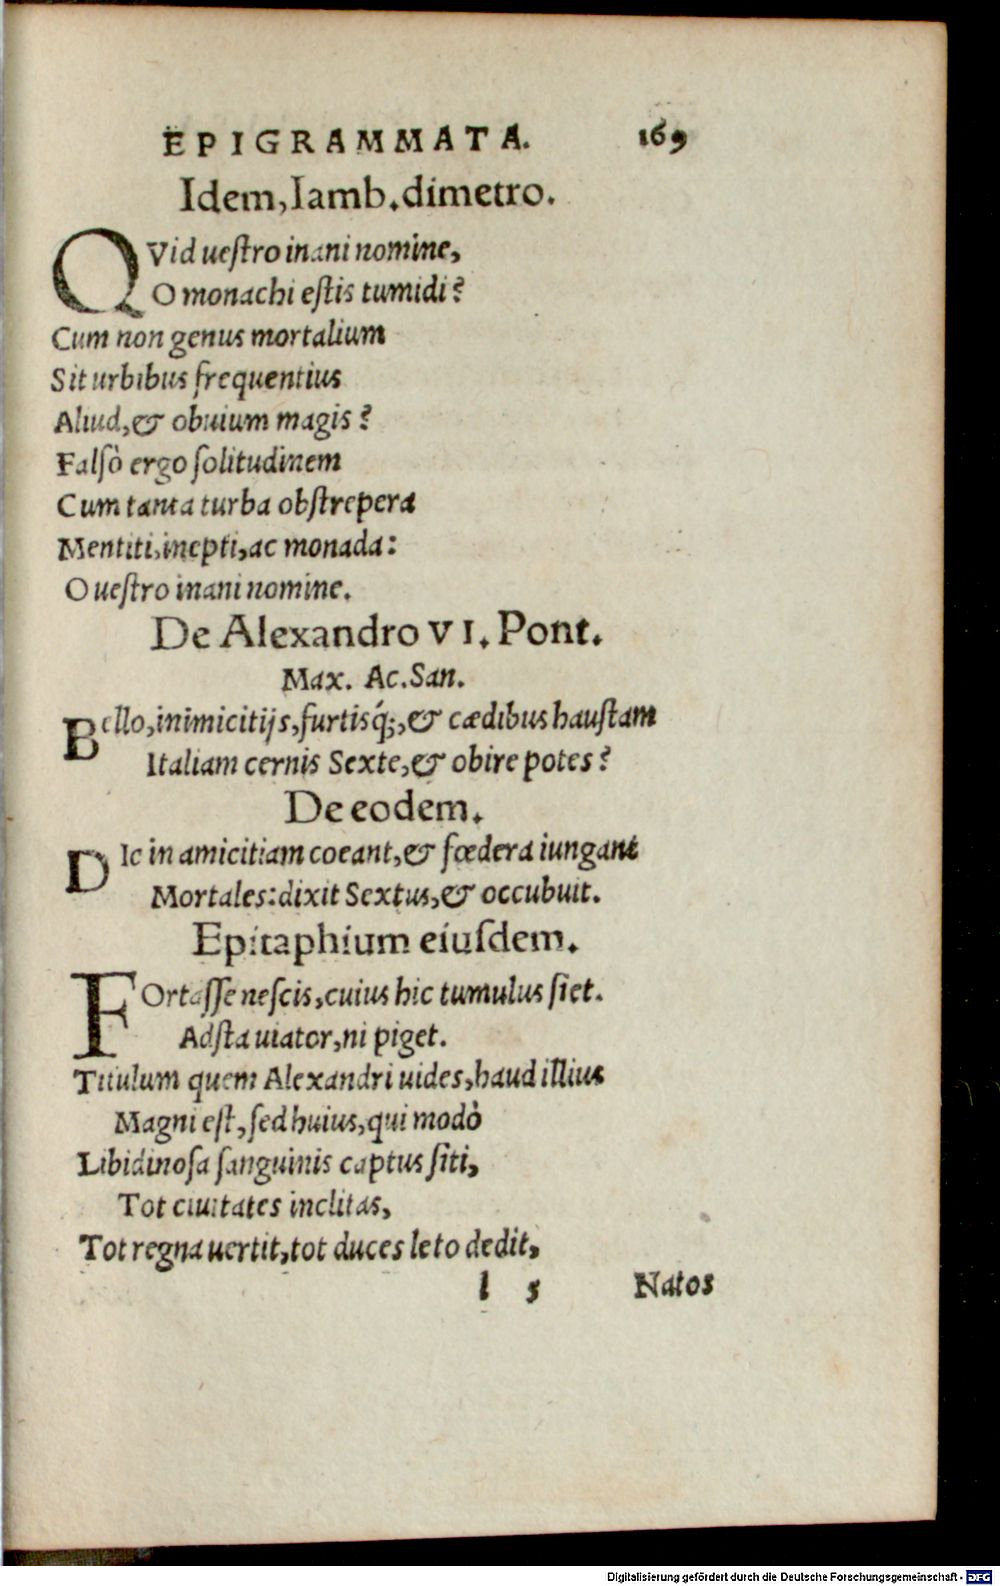 EPIGRAMMATA. 169
Idem, Iamb. dimetro.
QVid uestro inani nomine,
O monachi estis tumidi?
Cum non genus mortalium
Sit urbibus frequentius
Aliud, & obuium magis?
Falsò ergo solitudinem
Cum tanta turba obstrepera
Mentiti, inepti, ac monada:
O uestro inani nomine.
De Alexandro VI. Pont.
Max. Ac. San.
Bello, inimicitijs, furtisq́;, & cædibus haustam
Italiam cernis Sexte, & obire potes?
De eodem.
DIc in amicitiam coeant, & fœdera iungant
Mortales: dixit Sextus, & occubuit.
Epitaphium eiusdem.
FOrtasse nescis, cuius hic tumulus siet.
Adsta uiator, ni piget.
Titulum quem Alexandri uides, haud illius
Magni est, sed huius, qui modò
Libidinosa sanguinis captus siti,
Tot ciuitates inclitas,
Tot regna uertit, tot duces leto dedit,
l 5 Natos
Digitalisierung gefördert durch die Deutsche Forschungsgemeinschaft - DFG